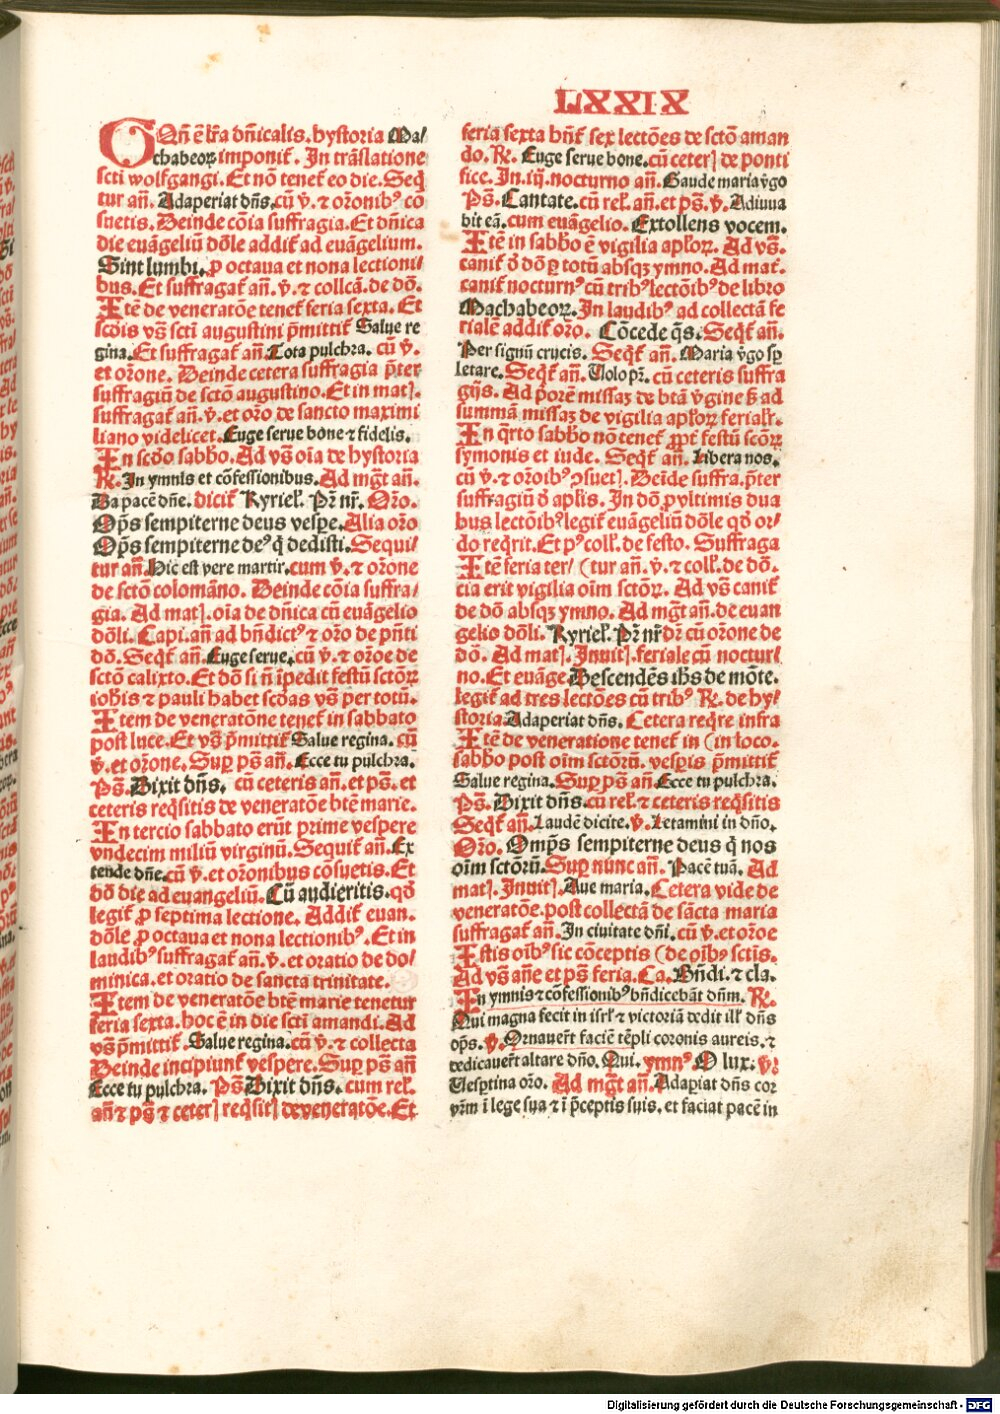 LXXIX
Qñ ē lr̄a dn̄icalis. hystoria Ma⸗
chabeoꝝ imponit̄. In trāslatione
scti wolfgangi. Et nō tenet̄ eo die. Seq̄
tur an̄. Adaperiat dn̄s. cū v̄. ⁊ oronibꝰ cō
suetis. Deinde cōia suffragia. Et dn̄ica
die euāgeliū dōle addit̄ ad euāgelium.
Sint lumbi. ꝓ octaua et nona lectioni⸗
bus. Et suffragat̄ an̄. v̄. ⁊ collcā. de dō.
Itē de veneratōe tenet̄ feria sexta. Et
scōis vs̄ scti augustini p̄mittit̄ Salue re
gina. Et suffragat̄ an̄. Tota pulchra. cū v̄.
et orōne. Deinde cetera suffragia p̄ter
suffragiū de sctō augustino. Et in matꝭ.
suffragat̄ an̄. v̄. et orō de sancto maximi
liano videlicet. Euge serue bone ⁊ fidelis.
In scd̄o sabbo. Ad vs̄ oīa de hystoria
℟. In ymnis et cōfessionibus. Ad mḡt an̄.
Da pacē dn̄e. dicit̄ Kyriel̄. Pr̄ nr̄. Orō.
Op̄s sempiterne deus vespe. Alia orō
Op̄s sempiterne deꝰ q̄ dedisti. Sequi⸗
tur an̄. Hic est vere martir. cum v̄. ⁊ orōne
de sctō colomāno. Deinde cōia suffra⸗
gia. Ad matꝭ. oīa de dn̄ica cū euāgelio
dōli. Capi. an̄ ad bn̄dictꝰ ⁊ orō de pn̄ti
dō. Seqt̄ an̄. Euge serue. cū v̄. ⁊ orōe de
sctō calixto. Et dō si n̄ īpedit festū sctōꝝ
ioh̄is ⁊ pauli habet scōas vs̄ per totū.
Item de veneratōne tenet̄ in sabbato
post luce. Et vs̄ p̄mittit̄ Salue regina. cū
v̄. et orōne. Suꝑ ps̄ an̄. Ecce tu pulchra.
Ps̄. Dixit dn̄s. cū ceteris an̄. et ps̄. et
ceteris reqsitis de veneratōe btē marie.
In tercio sabbato erūt prime vespere
vndecim miliū virginū. Sequit̄ an̄. Ex
tende dn̄e. cū v̄. et oronibus cōsuetis. Et
dō die ad euangeliū. Cū audieritis. qd̄
legit̄ ꝓ septima lectione. Addit̄ euan.
dōle ꝓ octaua et nona lectionibꝰ. Et in
laudibꝰ suffragat̄ an̄. v̄. et oratio de do⸗
minica. et oratio de sancta trinitate.
Item de veneratōe btē marie tenetur
feria sexta. hoc ē in die scti amandi. Ad
vs̄ p̄mittit̄. Salue regina. cū v̄. ⁊ collecta
Deinde incipiunt̄ vespere. Suꝑ ps̄ an̄
Ecce tu pulchra. Ps̄ Dixit dn̄s. cum rel̄.
an̄ ⁊ ps̄ ⁊ ceterꝭ reqsitꝭ de veneratōe. Et
feria sexta hn̄t̄ sex lectōes de sctō aman
do. ℟. Euge serue bone. cū ceterꝭ de ponti
fice. In. iij. nocturno an̄. Gaude maria v̄go
Ps̄. Cantate. cū rel̄. an̄. et ps̄. v̄. Adiuua
bit eā. cum euāgelio. Extollens vocem.
Itē in sabbō ē vigilia apl̄oꝝ. Ad vs̄.
canit̄ ō dō ꝑ totū absqꝫ ymno. Ad mat̄.
canit̄ nocturnꝰ cū tribꝰ lectōibꝰ de libro
Machabeoꝝ. In laudibꝰ ad collectā fe
rialē addit̄ orō. Cōcede q̄s. Seqt̄ an̄.
Per signū crucis. Seqt̄ an̄. Maria v̄go sꝑ
letare. Seqt̄ an̄. Uolo pr̄. cū ceteris suffra
gijs. Ad porē missaꝫ de btā v̄gine ẜ ad
summā missaꝫ de vigilia apl̄oꝝ ferialr̄.
In q̄rto sabbō nō tenet̄ ꝓpt̄ festū scōꝝ
symonis et iude. Seqt̄ an̄. Libera nos.
cū v̄. ⁊ orōibꝰ ꝯsuetꝭ. Deīde suffra. p̄ter
suffragiū ō aplis. In dō pvltimis dua
bus lectōibꝰ legit̄ euāgeliū dōle qd̄ or⸗
do reqrit. Et pꝰ coll̄. de festo. Suffraga
Itē feria ter⸗ (tur an̄. v̄. ⁊ coll̄. de dō.
cia erit vigilia oīm sctōꝝ. Ad vs̄ canit̄
de dō absqꝫ ymno. Ad mḡt an̄. de euan
gelio dōli. Kyriel̄. Pr̄ nr̄ dr̄ cū orōne de
dō. Ad matꝭ. Inuitꝭ. feriale cū noctur⸗
no. Et euāge Descendēs ih̄s de mōte.
legit̄ ad tres lectōes cū tribꝰ ℟. de hy⸗
storia. Adaperiat dn̄s. Cetera reqre infra
Itē de veneratione tenet̄ in (in loco.
sabbō post oīm sctōrū. vesperis p̄mittit̄
Salue regina. Suꝑ ps̄ an̄. Ecce tu pulchra.
Ps̄. Dixit dn̄s. cū rel̄. ⁊ ceteris reqsitis
Seqt̄ an̄. Laudē dicite. v̄. Letamini in dn̄o.
Orō. Omp̄s sempiterne deus q̄ nos
oīm sctōrū. Suꝑ nunc an̄. Pacē tuā. Ad
matꝭ. Inuitꝭ. Aue maria. Cetera vide de
veneratōe. post collectā de sācta maria
suffragat̄ an̄. In ciuitate dn̄i. cū v̄. et orōe
Istis oībꝰ sic cōceptis (de oībꝰ sctīs.
Ad vs̄ an̄e et ps̄ feria. Ca. Bn̄di. ⁊ cla.
In ymnis ⁊ cōfessionibꝰ bn̄dicebāt dn̄m. ℟.
Qui magna fecit in isrl̄ ⁊ victoriā dedit ill̄ dn̄s
op̄s. v̄. Ornauerūt faciē tēpli coronis aureis. ⁊
dedicauerūt altare dn̄o. Qui. ymnꝰ O lux. v̄.
Uesptina orō. Ad mḡt an̄. Adapiat dn̄s cor
vr̄m ī lege sua ⁊ ī p̄ceptis suis. et faciat pacē in
Digitalisierung gefördert durch die Deutsche Forschungsgemeinschaft - DFG